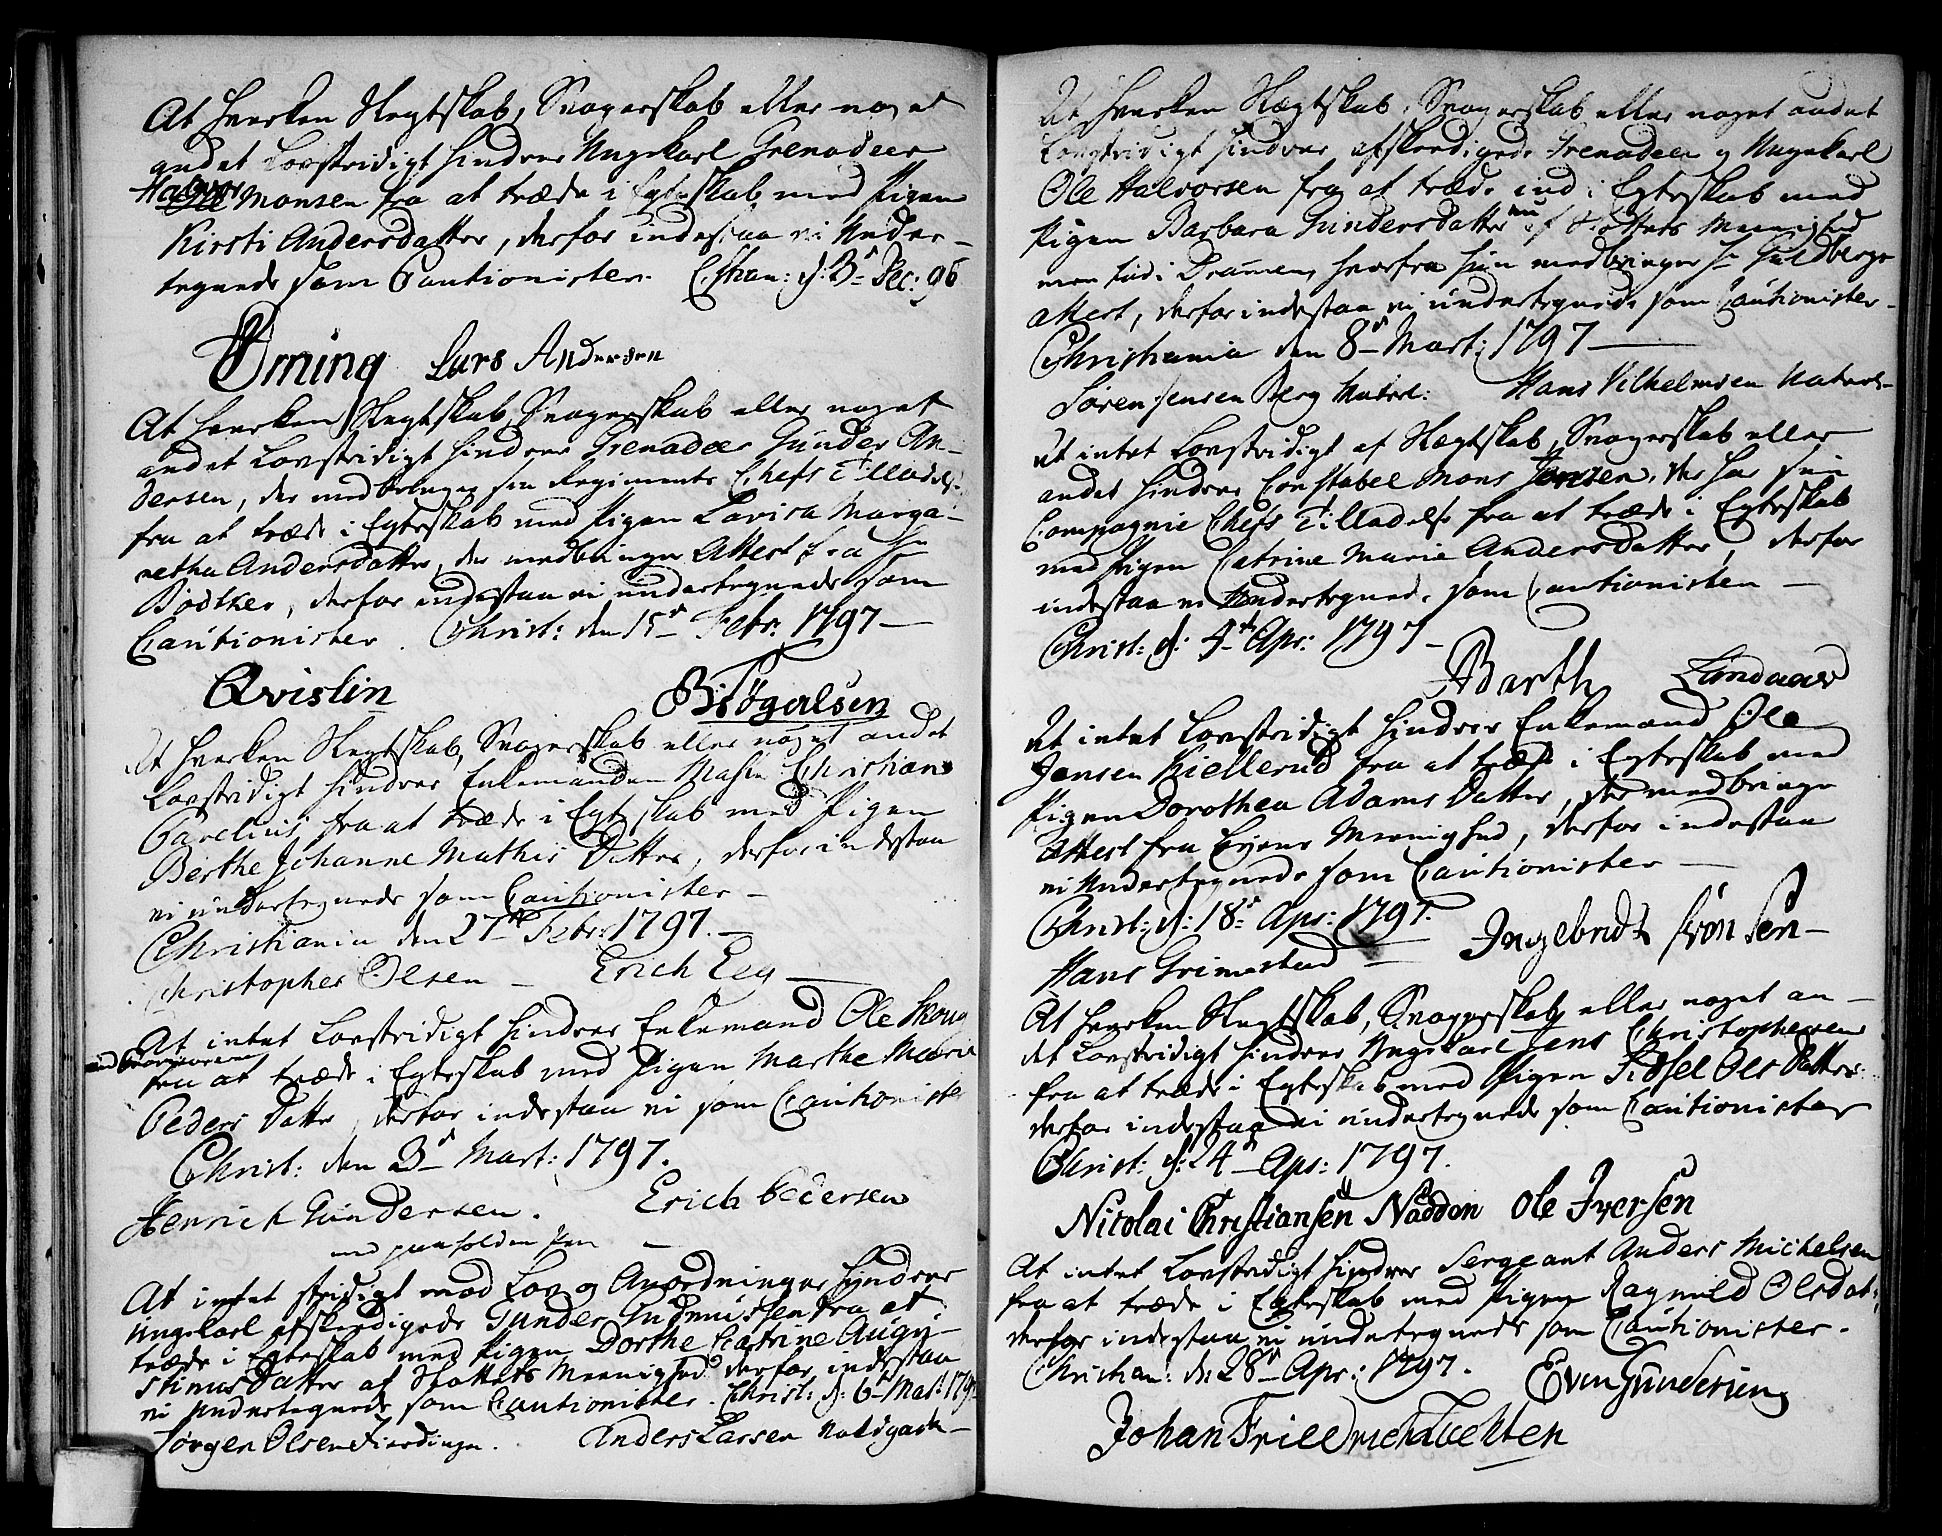 At hverken Slegtskab, Svogerskab eller noget
andet Lovstridigt hindrer Ungekarl Grenadeer
Halvor Monsen fra at træde i Egteskab med Pigen
Kirsti Andersdatter, derfor indestaa vi Under-
tegnede som Cautionister. Chran: d: 3 Dec: 96
Orning Lars Andersen
At hverken Slegtskab, Svogerskab eller noget
andet Lovstridigt hindrer Grenadeer Gunder An-
dersen, der medbringer sin Regiments Chefs Tilladelse
fra at træde i Egteskab med Pigen Lovisa Marga-
retha Andersdatter, der medbringer Attest fra Hr
Bödtker, derfor indestaa vi undertegnede som
Cautionister. Christ: den 15 Febr. 1797
Qvislin
At hverken Slegtskab, Svogerskab eller noget andet
Lovstridigt hindrer Enkemanden Christian
Carelius fra at træde i Egteskab med Pigen
Berthe Johanne Mathis Datter, derfor indestaa
vi undertegnede som Cautionister
Christiania den 27 Febr 1797.
Christopher Olsen Erich Eeg
At intet Lovstridigt hindrer Enkemand Ole Skoug
fra at træde i Egteskab med Pigen Marthe Maria
Peders Datter, derfor indestaa vi som Cautionister
Christ: den 3 Mart: 1797.
Henrich Gundersen. Erich Pedersen
med paaholden Pen
At intet stridigt mod Lov og Anordninger hindrer
Ungekarl afskedigede Gunder Gudmussen fra at
træde i Egteskab med Pigen Dorthe Catrine Augu-
stinus Datter af Slottets Meenighed derfor indestaa
vi Undertegnede som Cautionister. Christ: d: 6 Mart: 1797
Jörgen Olsen Fierdingen. Anders Larsen
At hverken Slægtskab, Svogerskab eller noget andet
Lovstridigt hindrer afskedigede Grenadeer og Ungekarl
Ole Halvorsen fra at træde ind i Egteskab med
Pigen Barbara Gundersdatter nu af Slottets Meenighed
men før i Drammen, hvorfra hun medbringer Hr Guldbergs
attest, derfor indestaa vi undertegnede som Cautionister.
Christiania den 8 Mart: 1797
Sören Jensen Berg Hans Vilhelmsen
At intet Lovstridigt af Slægtskab, Svogerskab eller
andet hindrer Constabel Mons Jensen, der har sin
Compagnie Chefs Tilladelse fra at træde i Egteskab
med Pigen Catrine Marie Andersdatter, derfor
indestaa vi Undertegnede som Cautionister
Christ: d: 4 Apr: 1797
Barth
At intet Lovstridigt hindrer Enkemand Ole
Jensen Kiellerud fra at træde i Egteskab med
Pigen Dorothea Adams Datter, der medbringer
Attest fra Meenighed, derfor indestaa
vi Undertegnede som Cautionister
Christ: d: 18 Apr: 1797.
Hans Grimestad Ingebridt
At hverken Slegtskab, Svogerskab eller noget an-
det Lovstridigt hindrer Ungekarl Jens Christophersen
fra at træde i Egteskab med Pigen Sidsel Ols Datter
derfor indestaa vi undertegnede som Cautionister
Christ: d: 24 Apr: 1797.
Nicolai Christiansen Naddon Ole Iversen
At intet Lovstridigt hindrer Sergeant Anders Michelsen
fra at træde i Egteskab med Pigen Ragnild Olsdat:
derfor indestaa vi undertegnede som Cautionister.
Christian: d: 28 Apr: 1797.
Even Gundersen
Johan Friedrich